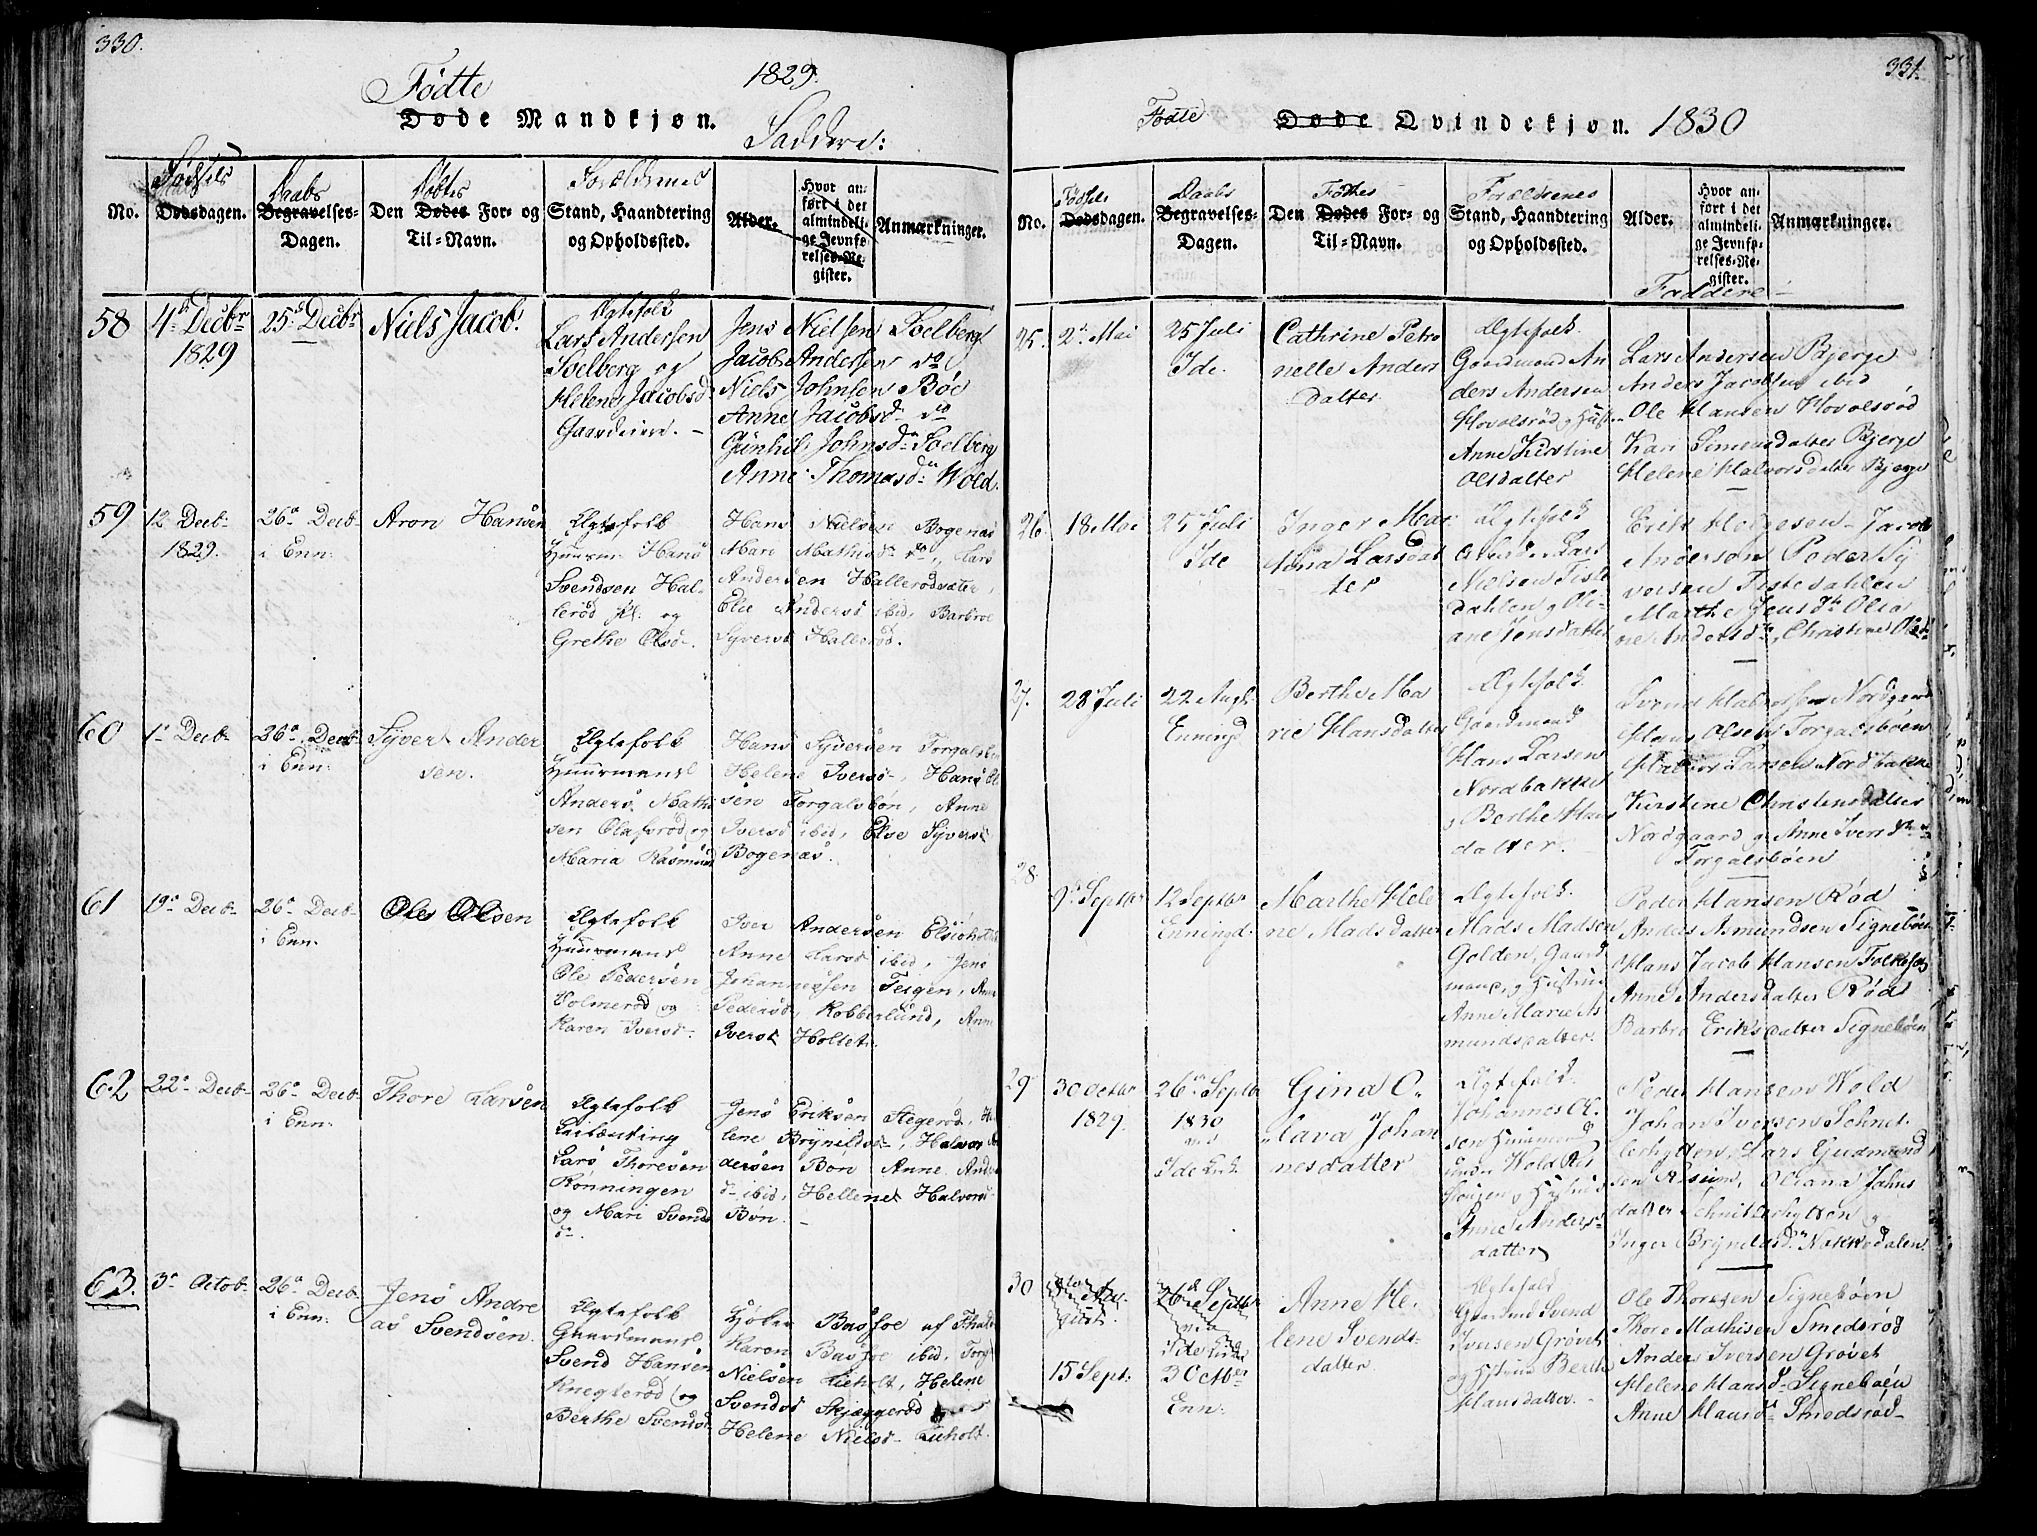 330.
Fødte 1829.
Døde Mandkjøn. Faddere:
Fødsels Daabs Døbtes Forældrenes
No. Dødsdagen. Begravelses-Dagen. Den Dødes For- og Til-Navn. Stand, Haandtering og Opholdssted. Alder. Hvor anført i det almindelige Jevnførelses-Register. Anmærkninger.
58 4de Decbr 1829 25de Decbr Niels Jacob.
Ægtefolk
Lars Andersen
Soelberg og
Helene Jacobsd
Gaardeiere. –
Jens Nielsen Soelberg
Jacob Andersen do
Niels Johnsen Böe
Anne Jacobsd do
Gunhil Johnsd Soelberg
Anne Thomasd Wold.
59 12 Decb 1829. 26 Decb i Enn: Aron Hansen
Ægtefolk
Huusm. Hans
Svendsen Hal-
leröd pl: og
Grethe Olsd
Hans Nielsen Bogenæs
Mari Mathisd do, Lars
Andersen Hallerödsæter,
Elie Andersd ibid, Barbroe
Syversd Hallerød.
60 1 Decb 26 Decb i Enn: Syver Ander
sen.
Ægtefolk
Huusmand
Anders Math
sen Olafsröd og
Maria Rasmusd
Hans Syversen Torgalsbön
Helene Iversd, Hans Ol
sen Torgalsbön, Anne
Iversd ibid, Else Syversd
Bogenæs.
61 19 Decb 26 Decb i Enn. Ole Olsen
Ægtefolk
Huusmand
Ole Pedersen
Holmeröd og
Karen Iversd
Iver Andersen
Anne Larsd ibid, Jens
Johannesen Teigen, Anne
Pedersd, Kobberlund, Anne
Iversd Holtet.
62 22 Decb 26 Decb i Enn: Thore Larsen
Ægtefolk
Lars Thoresen
Rønningen
og Mari Svends
d.
Jens Eriksen Stegeröd, He
lene Bryneldsd, Halvor An
dersen Bøn Anne Anders
d ibid, Hellene Halvorsd
Bøn. –
63. 3 Octob 26 Decb i Enn: Jens Andre
as Svendsen.
Ægtefolk
Gaardmand
Svend Hansen
Knegteröd og
Berthe Svendsd
Bassoe af
Karen Bassoe ibid,
Nielsen Lieholt, Helene
Svendsd Skjæggeröd
Helene Nielsd Lieholt.
331.
Fødte Døde Qvindekjøn. 1830
Fødsels Daabs Fødtes Forældrenes
No. Dødsdagen. Begravelses-Dagen. Den Dødes For- og Til-Navn. Stand, Haandtering og Opholdssted. Alder. Hvor anført i det almindelige Jevnførelses-Register. Anmærkninger.
Faddere
25. 2 Mai 25 Juli Ide. Cathrine Petro
nelle Anders
datter
Ægtefolk.
Gaardmand An
ders Andersen
Hovolsröd, Hust
Anne Kirstine
Olsdatter
Lars Andersen Bjerge
Anders Jacobsen ibid
Ole Hansen Hovolsröd
Kari Simensdatter Bjerge
Helene Halvorsdatter Bjerge
26. 18 Mai 25 Juli Ide Inger Mar
Larsdat
ter
Ægtefolk
Lars
Nielsen Tiste
dahlen og Oli-
ane Jensdatter
Erik Helgesen Jacob
Andersen Peder Sy
versen Tistedahlen
Marthe Jensdr Olia
ne Andersdr, Christine Olsdr
27. 28 Juli 22 Augt. Enningd Berthe Ma
rie Hansdatter
Ægtefolk
Gaardmand
Hans Larsen
Nordbakke
og Berthe Hans
datter.
Svend Halvorsen Nordgaard
Hans Olsen Torgalsbøen
Halvor Larsen Nordbakke
Kirstine Christensdatter
Nordgaard og Anne Iversdr
Torgalsbøen
28. 9 Septbr 12 Septbr Enningd. Marthe Hele
ne Madsdatter
Ægtefolk.
Mads Madsen
Golden, Gaard
mand, og Hustrue
Anne Marie As
mundsdatter.
Peder Hansen Rød
Anders Asmundsen Signebøen
Hans Jacob Hansen
Anne Andersdatter Rød
Barbro Eriksdatter Signebøen
29 30 Octbr 1829. 26 Septbr 1830 ved Ide Kirk. Gina O.
lava Johan
nesdatter
Ægtefolk.
Johannes Ol
sen Huusmand
under Wold
og Hustrue
Anne Anders-
datter
Peder Hansen Wold
Johan Iversen Schnit-
lerhytten, Lars Gudmund
sen Risum, Oliana Johns
datter Schnitlerhytten og
Inger Bryneldsd. Nokkedalen.
30 Au-
gust. 15 Sept: 26 Septbr ved Ide Kirke 3 Octber Enn: Anne He-
lene Svends-
datter.
Ægtefolk
Gaardmd Svend
Iversen Grövet
og Hustrue Berthe
Hansdatter. –
Ole Thoresen Signebøen
Thore Mathisen Smedsröd
Anders Iversen Grövet
Helene Hansd. Signebøen
Anne Hansd. Smedsröd